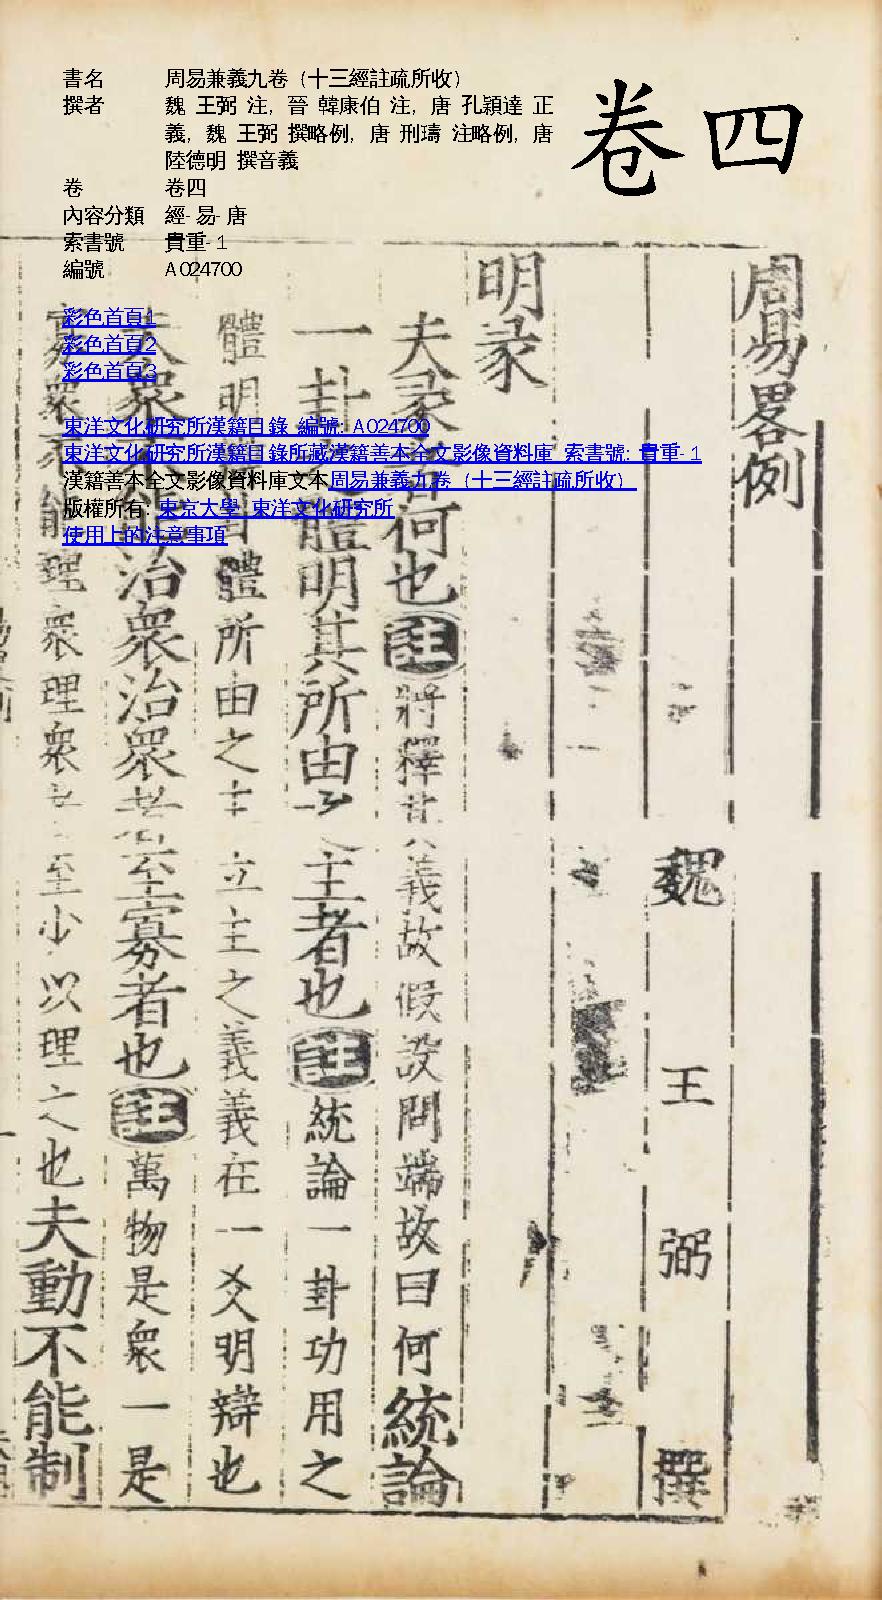 卷四
書名 周易兼義九卷（十三經註疏所收）
撰者 魏 王弼 注, 晉 韓康伯 注, 唐 孔穎達 正
義, 魏 王弼 撰略例, 唐 刑璹 注略例, 唐
陸德明 撰音義
卷 卷四
內容分類 經-易-唐
索書號 貴重-1
編號 A024700
彩色首頁1
彩色首頁2
彩色首頁3
東洋文化研究所漢籍目錄 編號: A024700
東洋文化研究所漢籍目錄所藏漢籍善本全文影像資料庫 索書號: 貴重-1
漢籍善本全文影像資料庫文本周易兼義九卷（十三經註疏所收）
版權所有: 東京大學 東洋文化研究所
使用上的注意事項
周易畧例
魏 王 弼 撰
明彖
夫彖者何也註將釋其義故假設問端故曰何統論
一卦之體明其所由之主者也註統論一卦功用之
體明體所由之主立主之義義在一爻明辯也
夫衆不能治衆治衆者至寡者也註萬物是衆一是
寡衆不能理衆理衆者至少以理之也夫動不能制